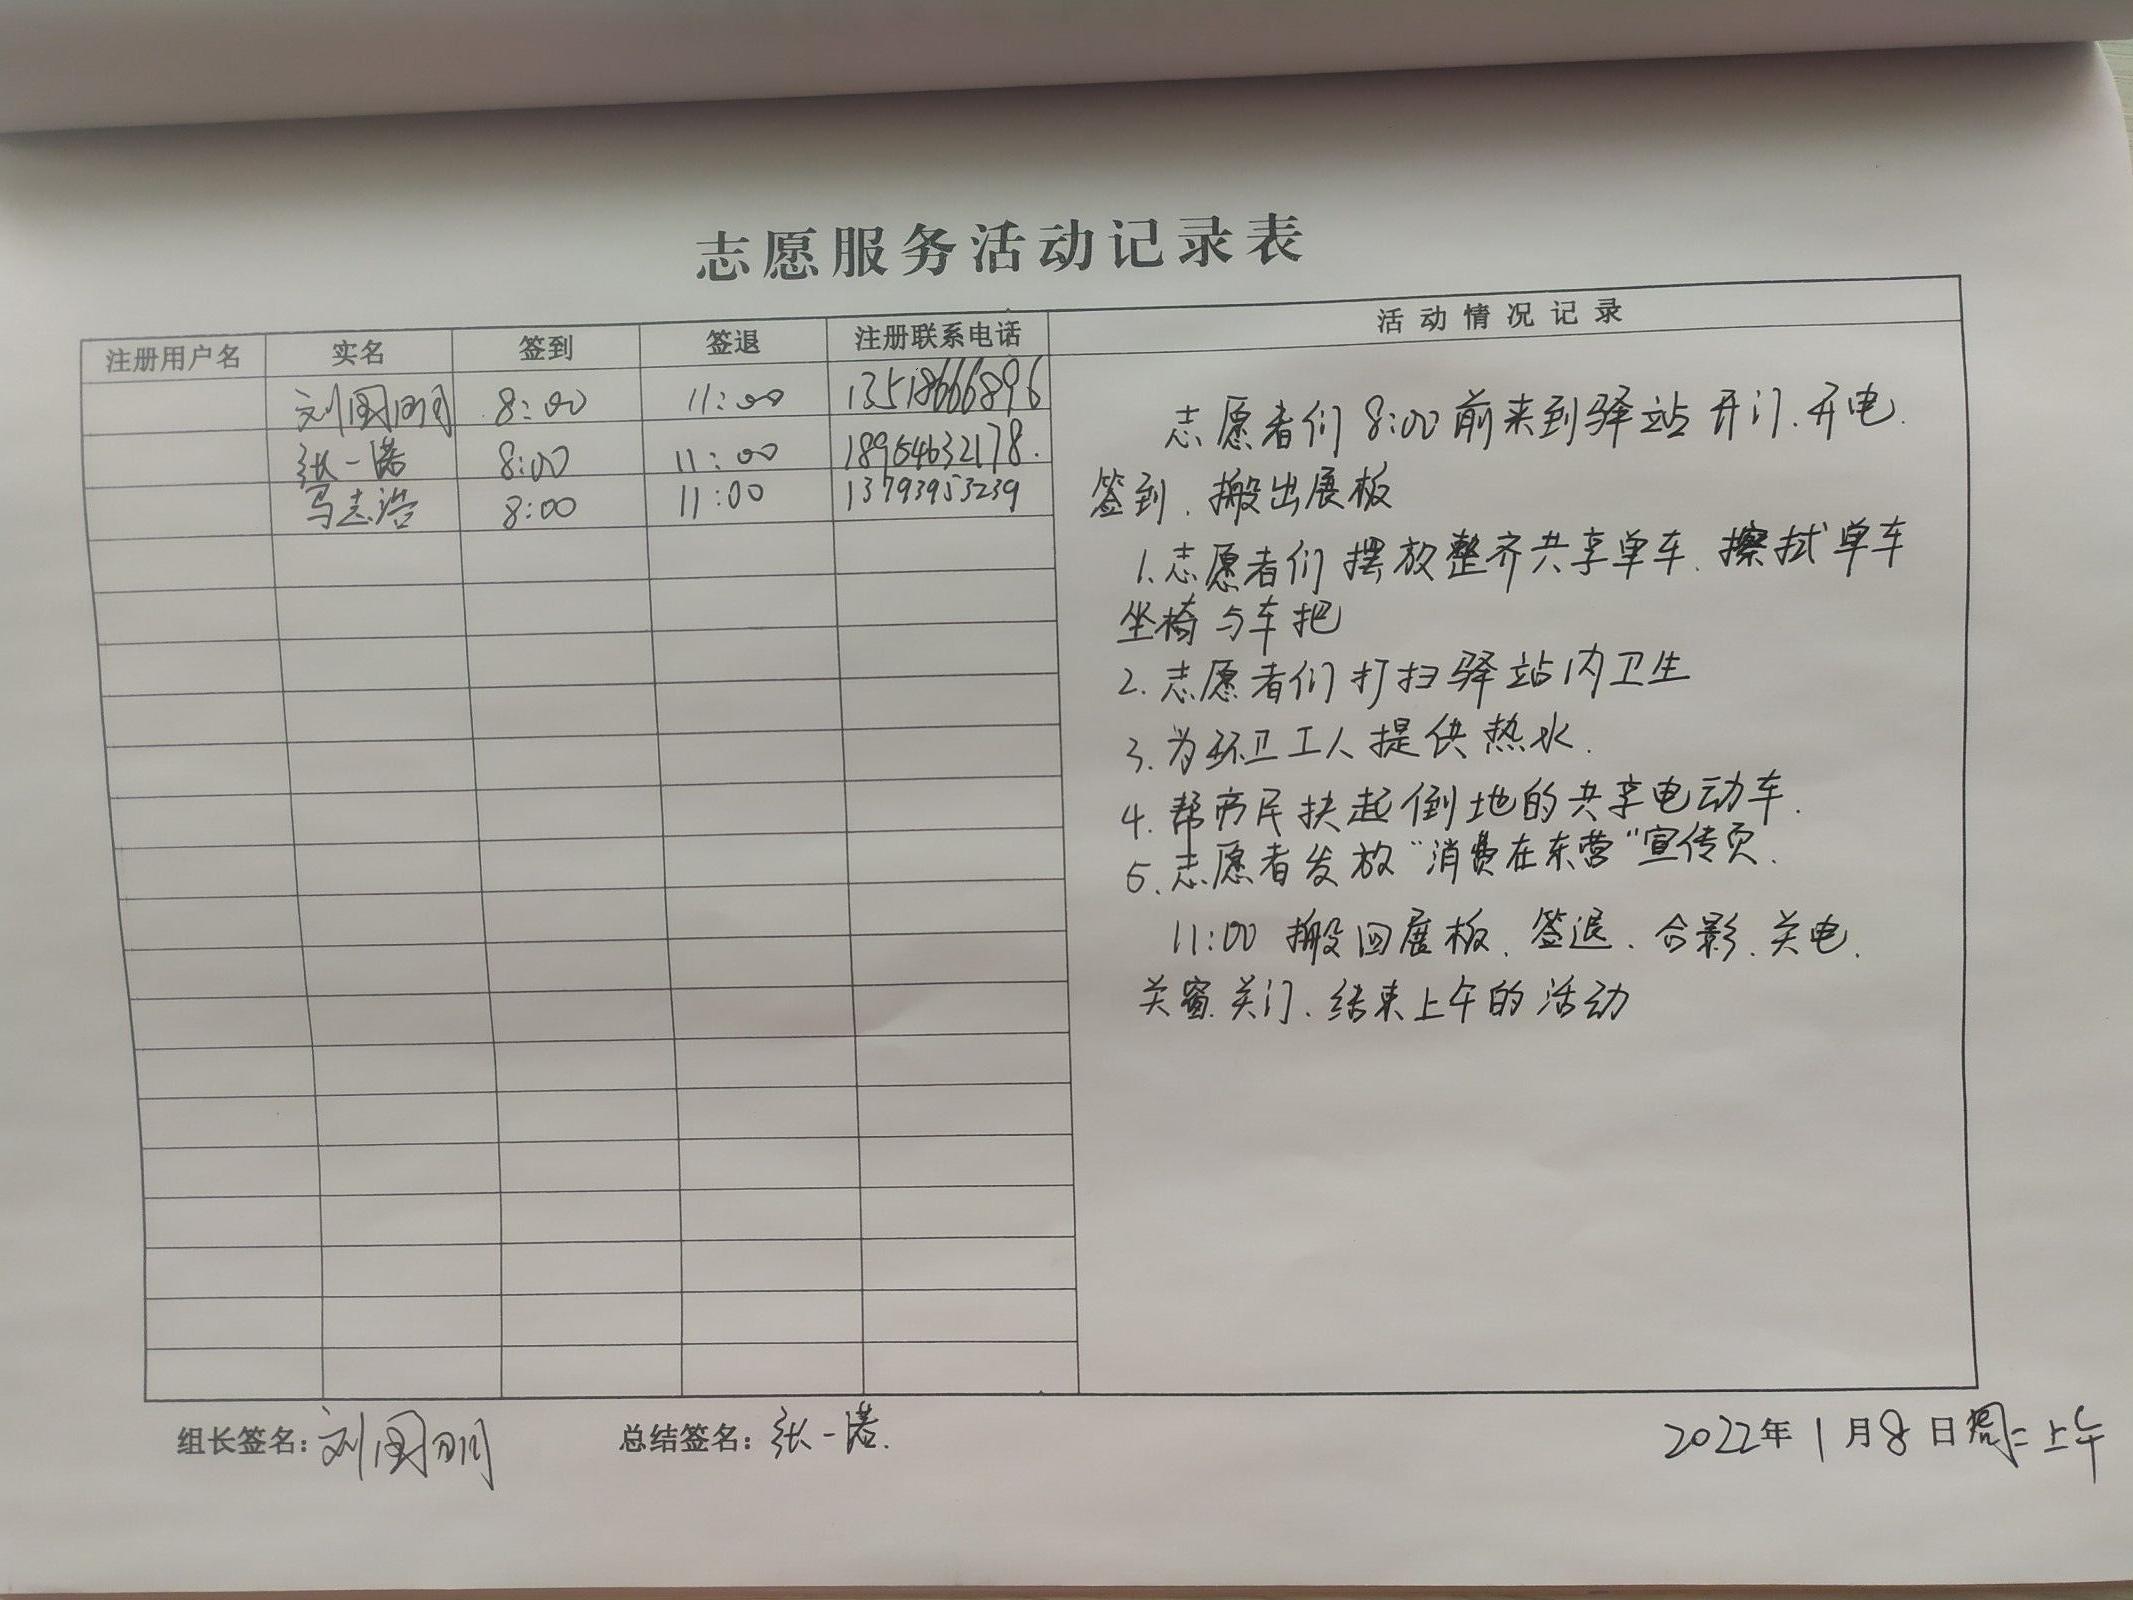 志愿服务活动记录表
注册用户名 实名 签到 签退 注册联系电话 活动情况记录
刘国明 8:00 11:00 13518666896
张一诺 8:00 11:00 18954632178.
马志浩 8:00 11:00 13793953239
志愿者们8:00前来到驿站开门、开电、
签到、搬出展板
1.志愿者们摆放整齐共享单车、擦拭单车
坐椅与车把
2.志愿者们打扫驿站内卫生
3.为环卫工人提供热水.
4.帮市民扶起倒地的共享电动车.
5.志愿者发放“消费在东营”宣传页.
11:00 搬回展板、签退、合影、关电、
关窗、关门、结束上午的活动
组长签名：刘国明 总结签名：张一诺. 2022年1月8日 上午